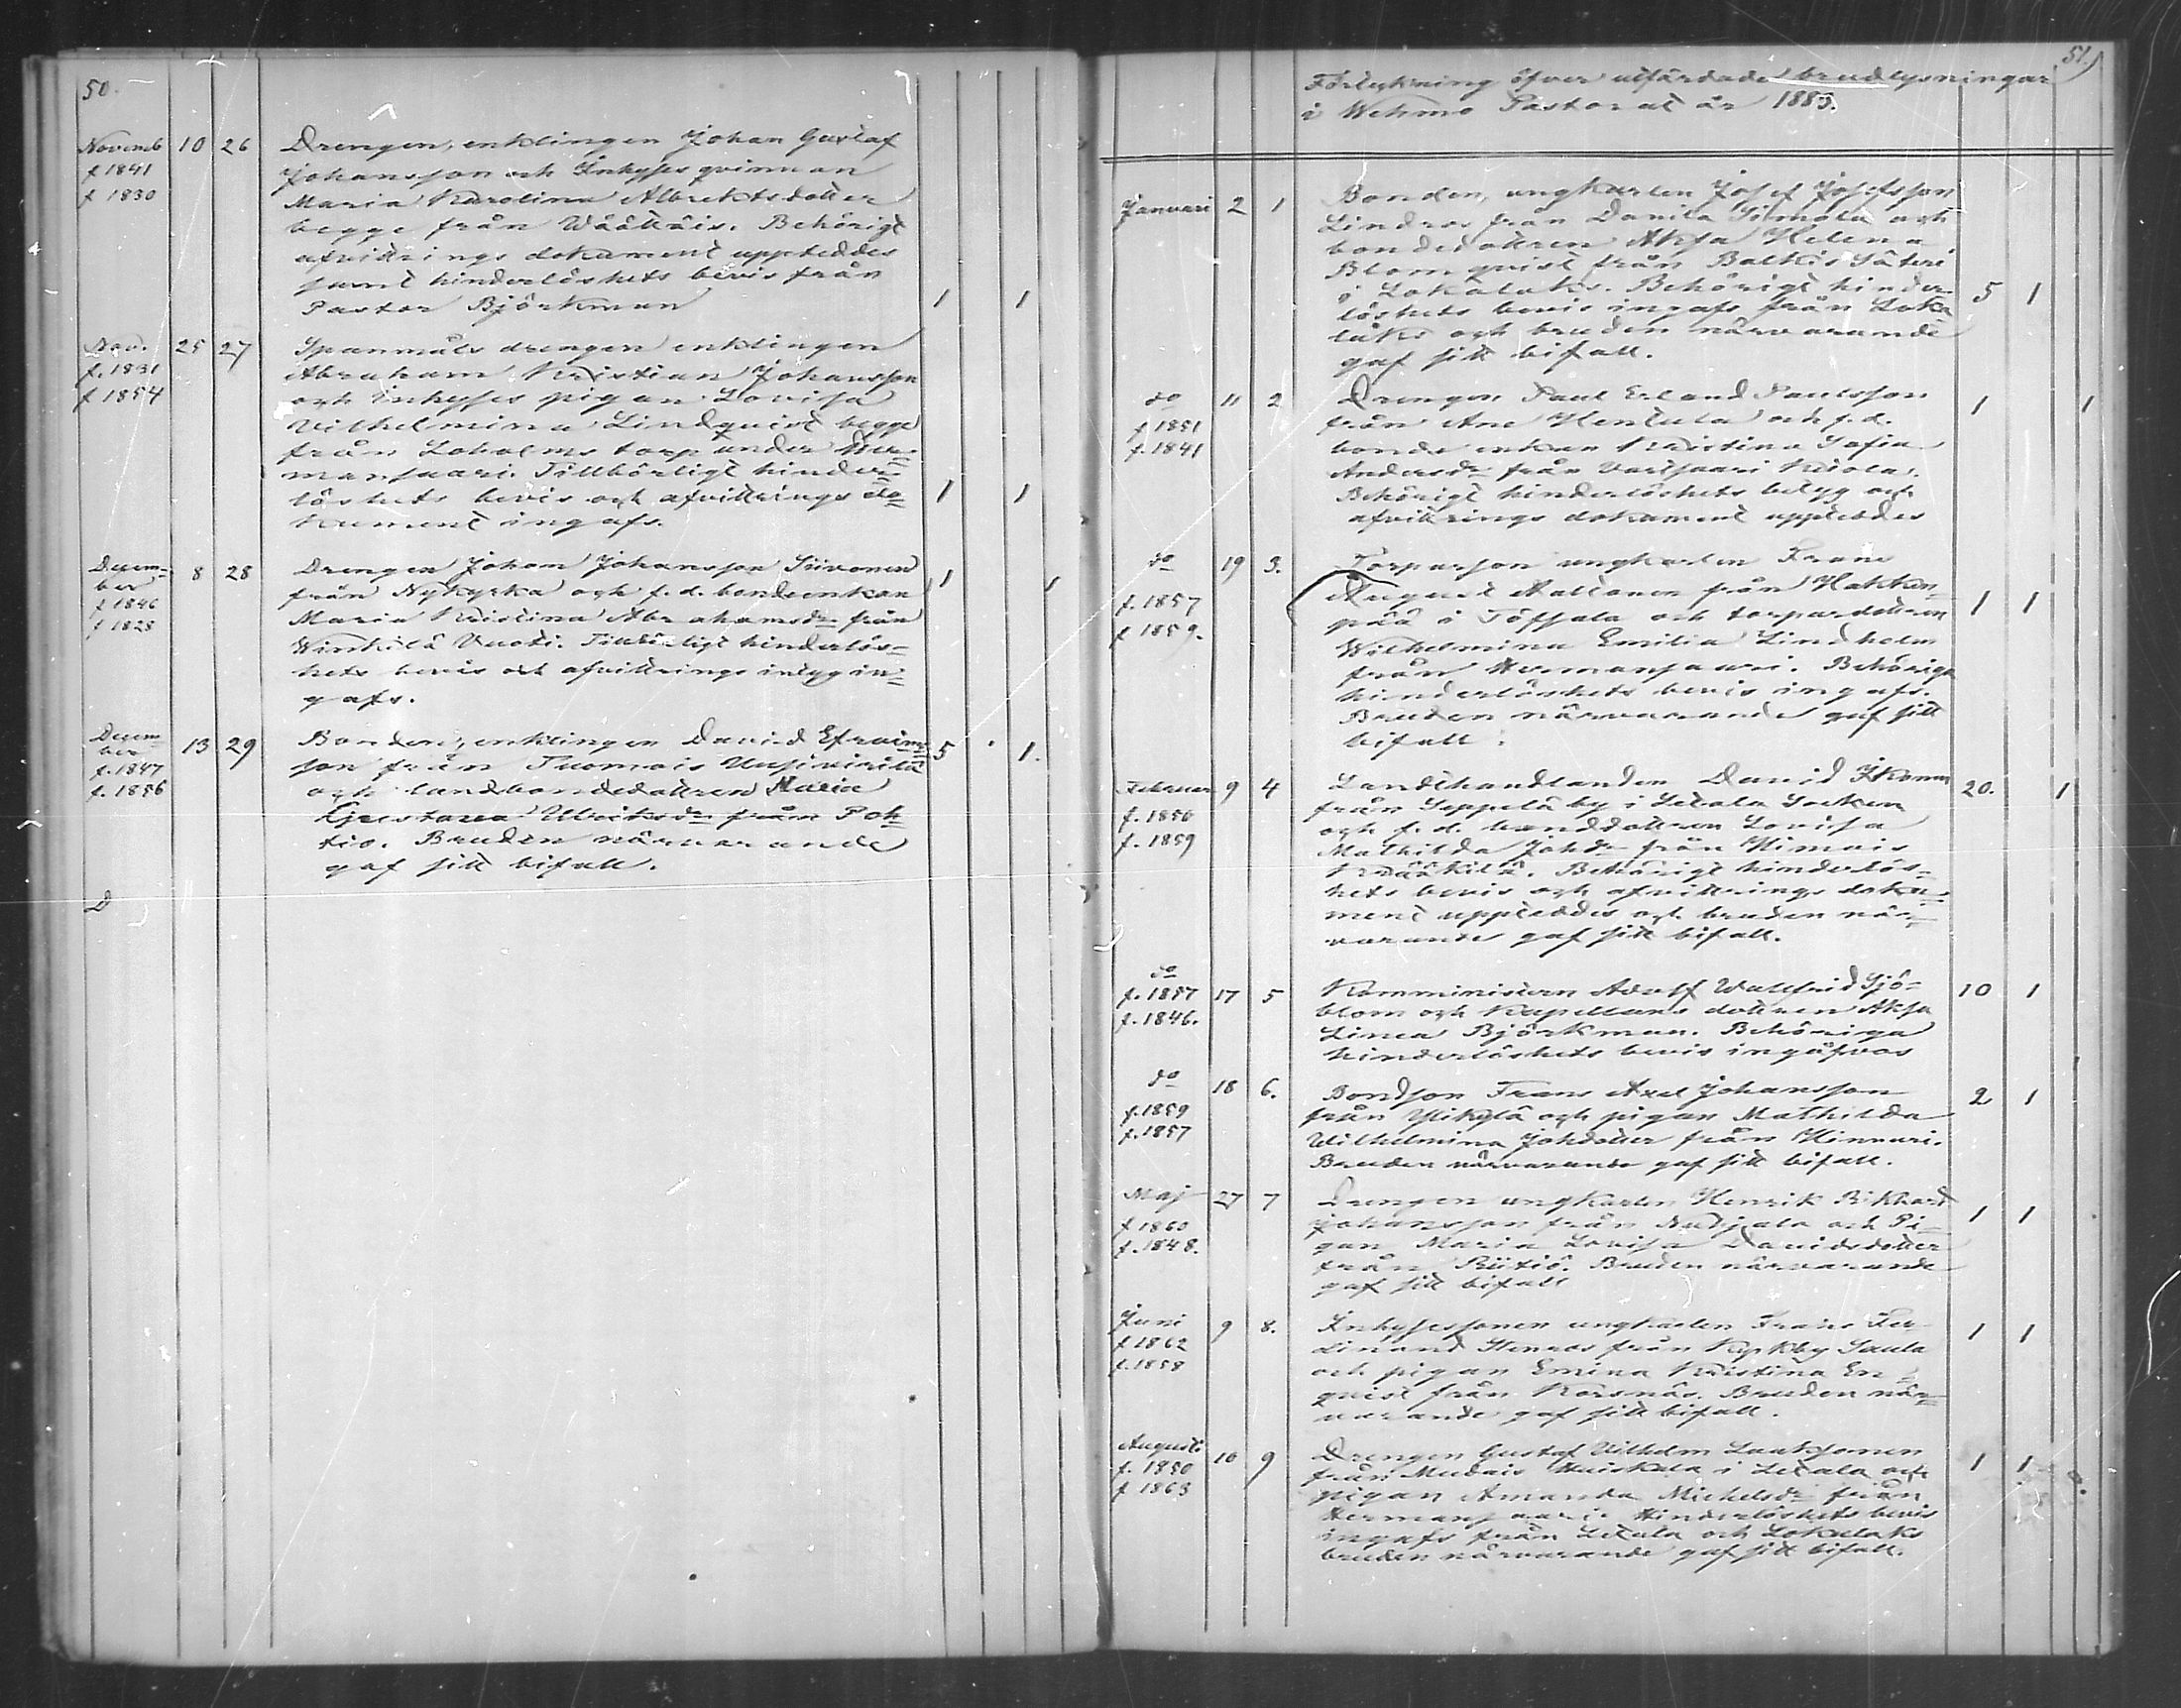 50.
Novemb 10 26 Drengen, enklingen Johan Gustaf
f 1841 Johansson och Inhyses qvinnan
f 1830 Maria Karolina Albrektsdotter
begge från Wäättäis. Behörigt
afvittrings dokument uppteddes
samt hinderlöshets bevis från
Pastor Björkman 1 1
Nov. 25 27 Spanmåls drengen enklingen
f. 1831 Abraham Kristian Johansson
f 1854 och Inhyses pigan Lovisa
Vilhelmina Lindqvist begge
från Laholms torp under Her-
mansaari. Tillbörligt hinder-
löshets bevis och afvittrings do- 1 1
kument ingafs.
Decem- 8 28 Drengen Johan Johansson Siivonen 1 1
ber från Nykyrka och f. d. bondeenkan
f 1846 Maria Kristina Abrahamsdr från
f 1828 Winkilä Vuoti. Tillbörligt hinderlös-
hets bevis och afvittrings intyg in-
gafs.
Decem- 13 29 Bonden, enklingen David Efraims- 5 1.
ber son från Tuomois Uusivirita
f. 1847 och landbondedottren Maria
f. 1856 Gustava Ulriksdr från Poh-
tio. Bruden närvarande
gaf sitt bifall.
D
51.
Förtekning öfver utfärdade brudlysningar
i Wehmo Pastorat år 1885.
Januari 2 1 Bonden, ungkarlen Josef Josefsson
Lindros från Danila Simola och
bondedottren Aksa Helena
Blomqvist från Baltis Säteri
i Lokalaks. Behörigt hinder- 5 1
löshets bevis ingafs från Loka
laks och bruden närvarande
gaf sitt bifall.
do 11 2 Drengen Paul Erland Paulsson 1 1
f 1851 från Ane Hentula och f. d.
f. 1841 bonde enkan Kristina Sofia
Andersdr från Vartsaari Kuola.
Behörigt hinderlöshets betyg och
afvittrings dokument uppteddes
do 19 3. Torparson ungkarlen Frans
f. 1857 August Aaltonen från Hakken- 1 1
f 1859. pää i Töfsala och torpardottren
Wilhelmina Emilia Lindholm
från Hermansaari. Behöriga
hinderlöshets bevis ingafs.
Bruden närvarande gaf sitt
bifall.
Februar 9 4 Landthandlanden David Ikonen 20. 1
f. 1856 från Seppälä by i Letala Socken
f. 1859 och f. d. bonddottren Lovisa
Mathilda Johdr från Himois
Krääkilä. Behörigt hinderlös-
hets bevis och afvittrings doku-
ment uppteddes och bruden när-
varande gaf sitt bifall.
do
f. 1857 17 5 Komministern Adolf Wallfrid Sjö- 10 1
f. 1846. blom och Kapellans dottren Aksa
Linea Björkman. Behöriga
hinderlöshets bevis ingåfvos
do 18 6. Bondson Frans Axel Johansson 2 1
f. 1859 från Ylikylä och pigan Mathilda
f. 1857 Wilhelmina Johdotter från Hinnari.
Bruden närvarande gaf sitt bifall.
Maj 27 7 Drengen ungkarlen Henrik Rikhard
f 1860 Johansson från Nutjala och Pi- 1 1
f. 1848. gan Maria Lovisa Davidsdotter
från Riitiö. Bruden närvarande
gaf sitt bifall
Juni 9 8. Inhysessonen ungkarlen Frans Fer- 1 1
f 1862 dinand Stenros från Kyrkby Saula
f. 1858 och pigan Emina Kristina En-
qvist från Korsnäs. Bruden när-
varande gaf sitt bifall.
Augusti 10 9 Drengen Gustaf Vilhelm Laaksonen 1 1
f. 1850 från Mudais Huiskala i Letala och
f 1863 pigan Amanda Michelsdr från
Hermansaari. Hinderlöshets bevis
ingafs från Letala och Lokalaks
bruden närvarande gaf sitt bifall.